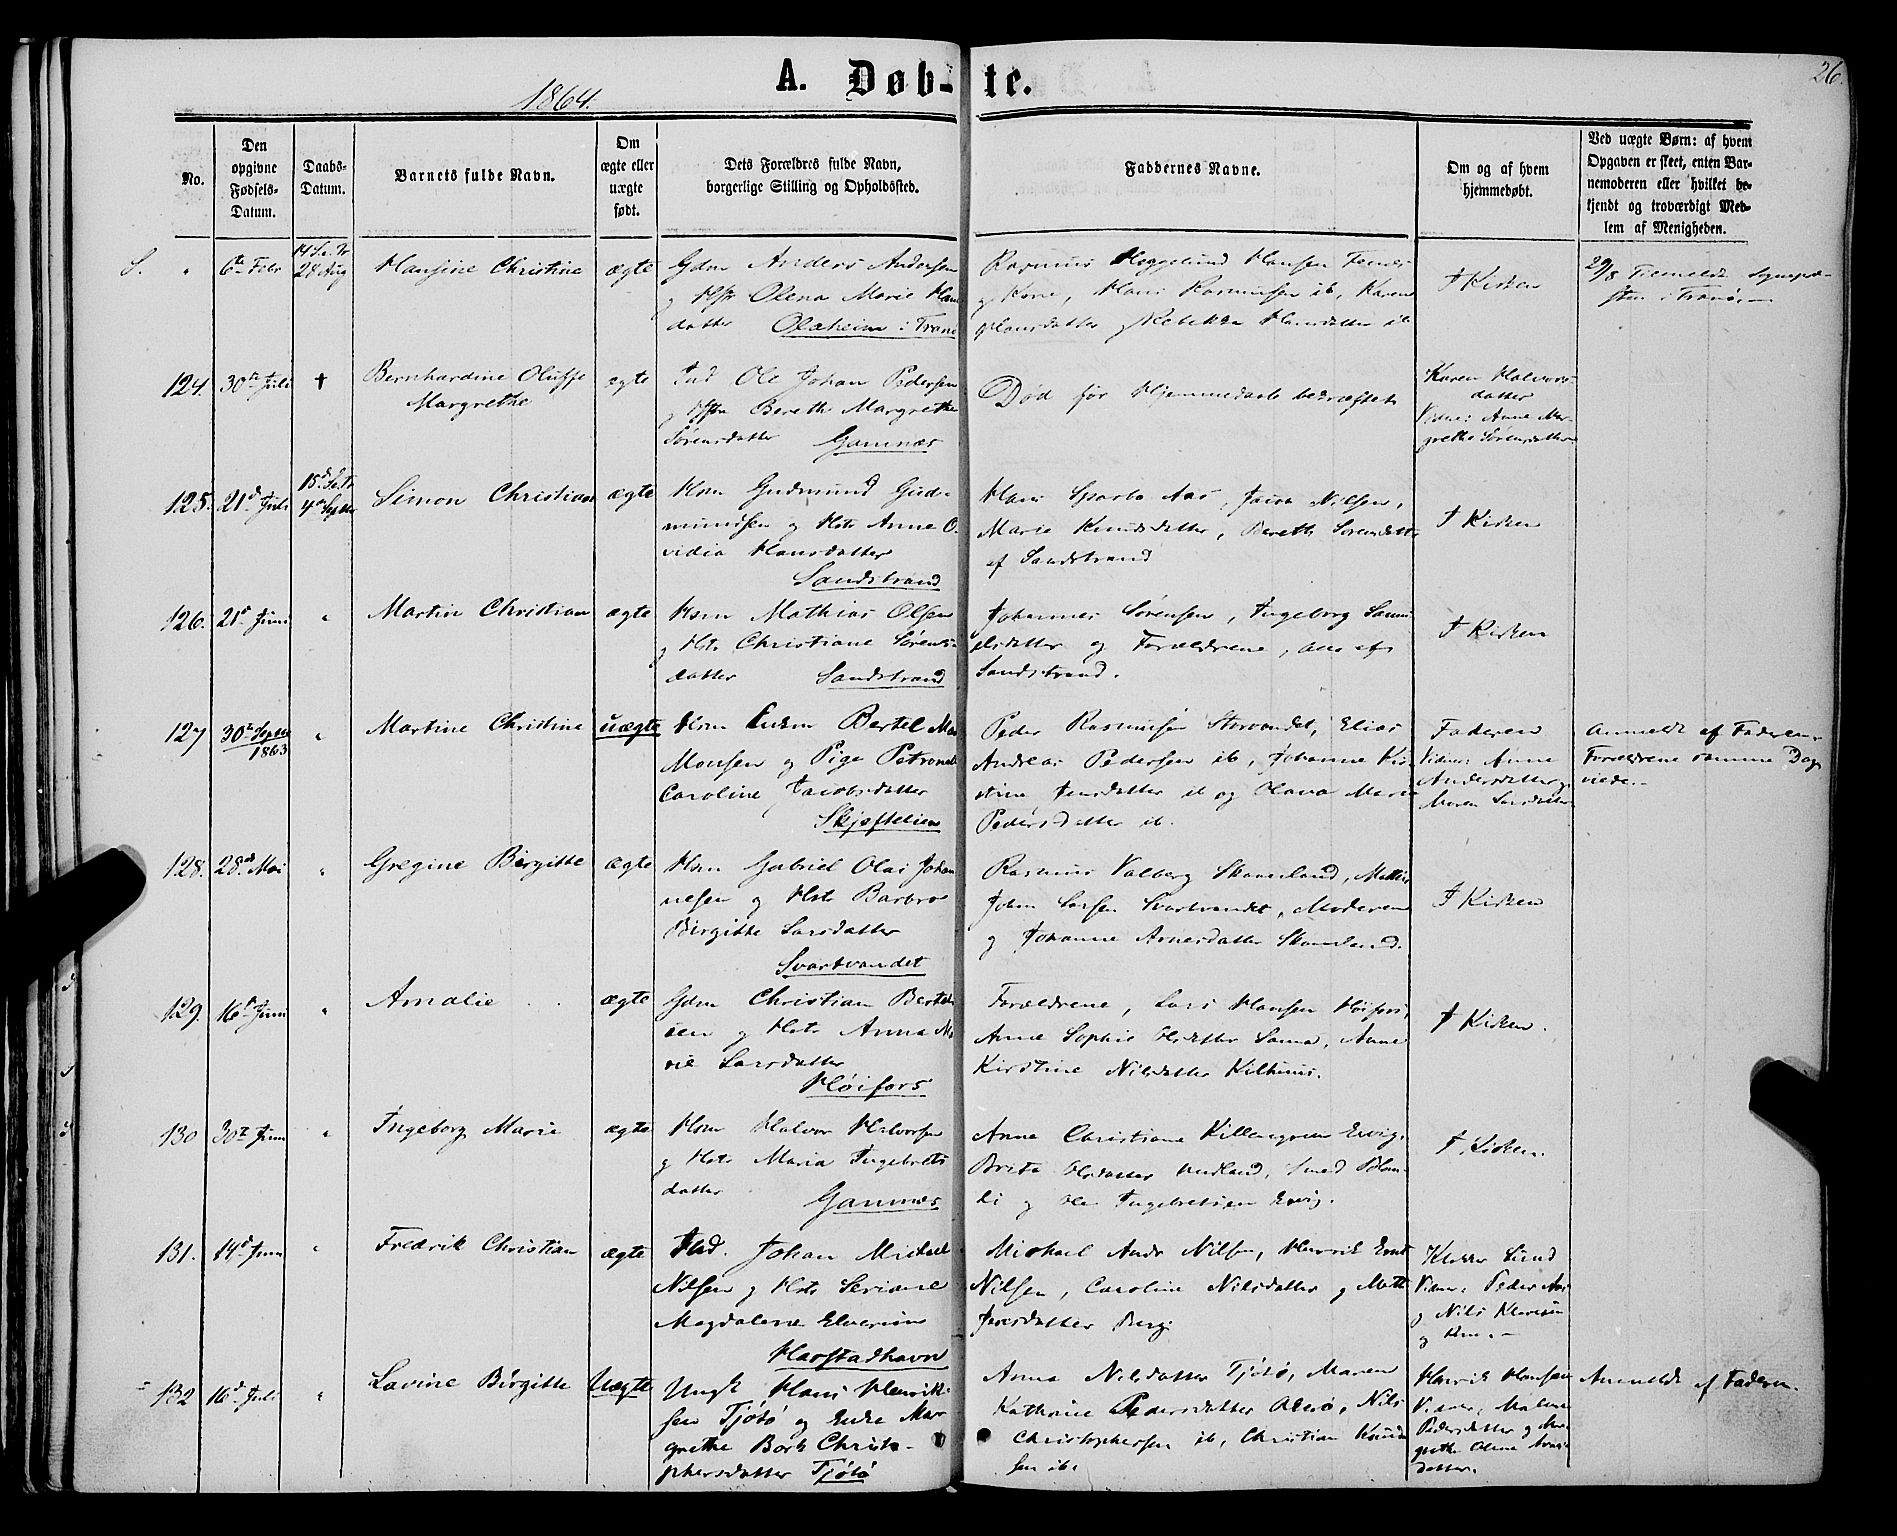 26
1864.
A. Døb-te.
No.
Den opgivne Fødsels-Datum.
Daabs-Datum.
Barnets fulde Navn.
Om ægte eller uægte født.
Dets Forældres fulde Navn, borgerlige Stilling og Opholdssted.
Faddernes Navne.
Om og af hvem hjemmedøbt.
Ved uægte Børn: af hvem Opgaven er skeet, enten Barnemoderen eller hvilket bekjendt og troværdigt Medlem af Menigheden.
S. " 6te Febr
14 S.e.Tr
28 Aug
Hansine Christine
ægte
Gdm Anders Andersen
og Hstr Olena Marie Hans
datter Olaheim i Tranø
Rasmus Heggelund Hansen
og Kone, Hans Rasmussen ib, Karen
Hansdatter og Rebekka Hansdatter ib
I Kirken
29/8 Tilmeldt Sognepræ-
sten i Tranø.
124. 30te Juli †
Bernhardine Oluffe
Margrethe
ægte
Ind Ole Johan Pedersen
og Hstr Bereth Margrethe
Sørensdatter Gamnæs
Død før Hjemmedaab bekræftet
Karen Halvors-
datter
Vidne: Anne Mar-
grethe Sørensdatter
125. 21d Juli
15d S.e.Tr
4de Septbr
Simon Christian
ægte
Hsm Gudmund Gud-
mundsen og Hstr Anne O-
vidia Hansdatter
Sandstrand
Hans Sparbo Aas, Jacob Nilsen,
Marie Knudsdatter, Bereth Sørensdatter
af Sandstrand
I Kirken
126. 21d Juni "
Martin Christian
ægte
Hsm Mathias Olsen
og Hstr Christiane Sørens-
datter Sandstrand
Johannes Sørensen, Ingeborg Samu-
elsdatter og Forældrene, alle af
Sandstrand.
I Kirken
127 30te Septbr
1863 "
Martine Christine
uægte
Hsm Enkm Bertel
Monsen og Pige Petronel
Caroline Jacobsdatter
Skjæftelien
Peder Rasmussen Storvandet, Elias
Andreas Pedersen ib, Johanne Kir
stine Jensdatter ib og Olava Marie
Pedersdatter ib.
Faderen
Vidner: Anne
Andersdatter og
Maren Larsdatter
Anmeldt af Faderen.
Forældrene samme Dag
viede.
128. 28de Mai "
Gregine Birgitte
ægte
Hsm Gabriel Olai Johan
nesen og Hstr Barbro
Birgitte Larsdatter
Svartvandet
Rasmus Valberg Skaanland, Mathis
Johan Larsen Svartvandet, Moderen
og Johanne Arnesdatter Skaanland.
I Kirken
129. 16d Juni "
Amalie
ægte
Gdm Christian Bertel
sen og Hstr Anna Ma
rie Larsdatter
Høifors
Forældrene, Lars Hansen Høifors,
Anne Sophie Olsdatter Sama, Anne
Kirstine Nilsdatter Kilhuus.
I Kirken.
130 30te Juni "
Ingeborg Marie
ægte
Hsm Halvor Halvorsen
og Hstr Maria Ingebrets
datter Gamnæs
Anne Christiane Ervig,
Brita Olsdatter, Smed
og Ole Ingebretsen Ervig.
I Kirken.
131. 14d Juni "
Fredrik Christian
ægte
Ind. Johan Michael
Nilsen og Hstr Seriane
Magdalene
Harstadhavn
Michael Andr Nilsen, Henrik Ernst
Nilsen, Caroline Nilsdatter og Mette
Jensdatter Berg.
Lund
Vidner: Peder Aas
og Nils
og Kone.
132 16d Juli "
Lavine Birgitte
Uægte
Ungk Hans Henrik-
sen Tjøtø og Enke Mar
grethe Bork Christo-
phersdatter Tjøtø
Anna Nilsdatter Tjøtø, Maren
Kathrine Pedersdatter, Nils
Christophersen ib, Christian Knud
sen ib.
Henrik Hansen
Vidner, Malene
Pedersdatter og Mar
grethe Oline
datter.
Anmeldt af Faderen.